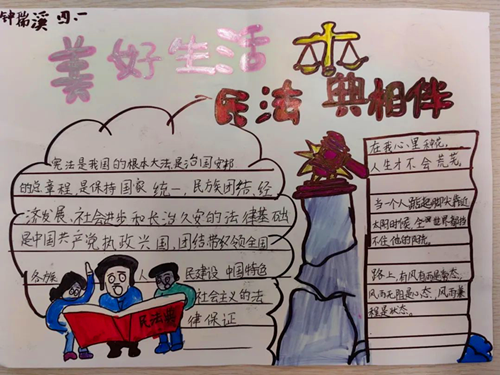 钟瑞溪 四.一
美好生活
民法典相伴
宪法是我国的根本大法,是治国安邦
的总章程,是保持国家统一,民族团结,经
济发展,社会进步和长治久安的法律基础
是中国共产党执政兴国,团结带领全国
各族人民建设中国特色
社会主义的法
律保证
民法典
在我心里种花,
人生才不会荒芜,
当一个人踮起脚尖靠近
太阳时候,全世界都挡
不住他的阳光,
路上,有风有雨是常态,
风雨无阻是心态,风雨兼
程是状态,